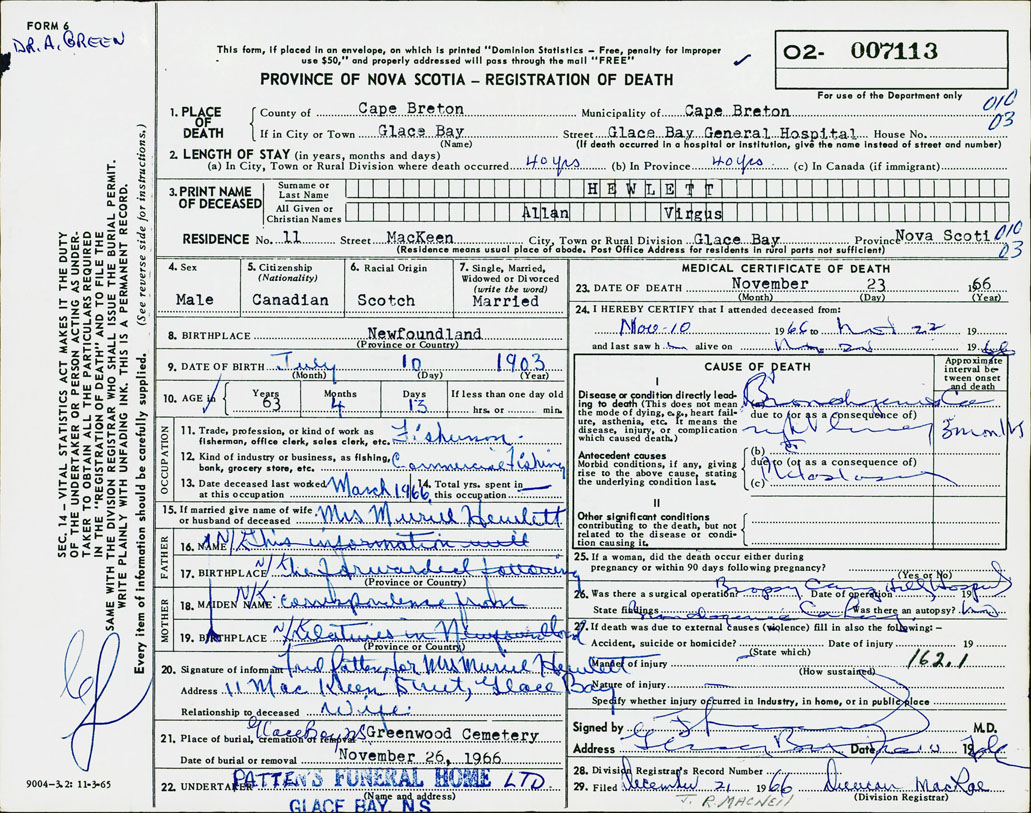 FORM 6
DR. A. GREEN
This form, if placed in an envelope, on which is printed "Dominion Statistics – Free, penalty for improper
use $50," and properly addressed will pass through the mail "FREE"
PROVINCE OF NOVA SCOTIA – REGISTRATION OF DEATH
02- 007113
For use of the Department only
010
03
1. PLACE OF DEATH
County of Cape Breton Municipality of Cape Breton
If in City or Town Glace Bay Street Glace Bay General Hospital House No.
(Name) (If death occurred in a hospital or institution, give the name instead of street and number)
2. LENGTH OF STAY (in years, months and days)
(a) In City, Town or Rural Division where death occurred 40 yrs (b) In Province 40 yrs. (c) In Canada (if immigrant)
3. PRINT NAME OF DECEASED
Surname or Last Name HEWLETT
All Given or Christian Names Allan Virgus
RESIDENCE No. 11 Street MacKeen City, Town or Rural Division Glace Bay Province Nova Scoti
(Residence means usual place of abode. Post Office Address for residents in rural parts not sufficient)
010
03
4. Sex
Male
5. Citizenship
(Nationality)
Canadian
6. Racial Origin
Scotch
7. Single, Married,
Widowed or Divorced
(write the word)
Married
8. BIRTHPLACE Newfoundland
(Province or Country)
9. DATE OF BIRTH July 10 1903
(Month) (Day) (Year)
10. AGE in Years 63 Months 4 Days 13 If less than one day old
hrs. or min.
OCCUPATION
11. Trade, profession, or kind of work as
fisherman, office clerk, sales clerk, etc. Fisherman
12. Kind of industry or business, as fishing,
bank, grocery store, etc. Commercial Fishing
13. Date deceased last worked at this occupation March 1966 14. Total yrs. spent in this occupation
15. If married give name of wife or husband of deceased Mrs Muriel Hewlett
FATHER
16. NAME N/K This information will
17. BIRTHPLACE N/K the forwarded following
(Province or Country)
MOTHER
18. MAIDEN NAME N/K correspondence from
19. BIRTHPLACE N/K Relatives in Newfoundland
(Province or Country)
20. Signature of informant Patten, for Mrs Muriel Hewlett
Address 11 MacKeen Street, Glace Bay
Relationship to deceased Wife
21. Place of burial, cremation or removal Glace Bay NS Greenwood Cemetery
Date of burial or removal November 26, 1966
22. UNDERTAKER PATTEN'S FUNERAL HOME LTD.
(Name and address)
GLACE BAY, N.S.
MEDICAL CERTIFICATE OF DEATH
23. DATE OF DEATH November 23 1966
(Month) (Day) (Year)
24. I HEREBY CERTIFY that I attended deceased from:
Nov-10 1966 to Nov 22 19
and last saw h alive on 1966
CAUSE OF DEATH
Approximate
interval be-
tween onset
and death
I
Disease or condition directly lead-
ing to death (This does not mean
the mode of dying, e.g., heart fail-
ure, asthenia, etc. It means the
disease, injury, or complication
which caused death.)
(a) Bronchogenic Ca
due to (or as a consequence of)
right lung 3 months
Antecedent causes
Morbid conditions, if any, giving
rise to the above cause, stating
the underlying condition last.
(b)
due to (or as a consequence of)
(c)
II
Other significant conditions
contributing to the death, but not
related to the disease or condi-
tion causing it.
25. If a woman, did the death occur either during
pregnancy or within 90 days following pregnancy?
(Yes or No)
26. Was there a surgical operation? Biopsy Camp Hill Hospital Date of operation 19
State findings Bronchogenic Ca Was there an autopsy? no
27. If death was due to external causes (violence) fill in also the following: –
Accident, suicide or homicide? Date of injury 19
(State which)
162.1
Manner of injury
(How sustained)
Nature of injury
Specify whether injury occurred in industry, in home, or in public place
Signed by M.D.
Address Glace Bay Date 19
28. Division Registrar's Record Number
29. Filed December 21 1966 Duncan MacRae
(Division Registrar)
J. R. MACNEIL
SEC. 14 – VITAL STATISTICS ACT MAKES IT THE DUTY
OF THE UNDERTAKER OR PERSON ACTING AS UNDER-
TAKER TO OBTAIN ALL THE PARTICULARS REQUIRED
IN THE "REGISTRATION OF DEATH" AND TO FILE THE
SAME WITH THE DIVISION REGISTRAR WHO SHALL ISSUE THE BURIAL PERMIT.
WRITE PLAINLY WITH UNFADING INK. THIS IS A PERMANENT RECORD.
Every item of information should be carefully supplied. (See reverse side for instructions.)
9004-3.2: 11-3-65